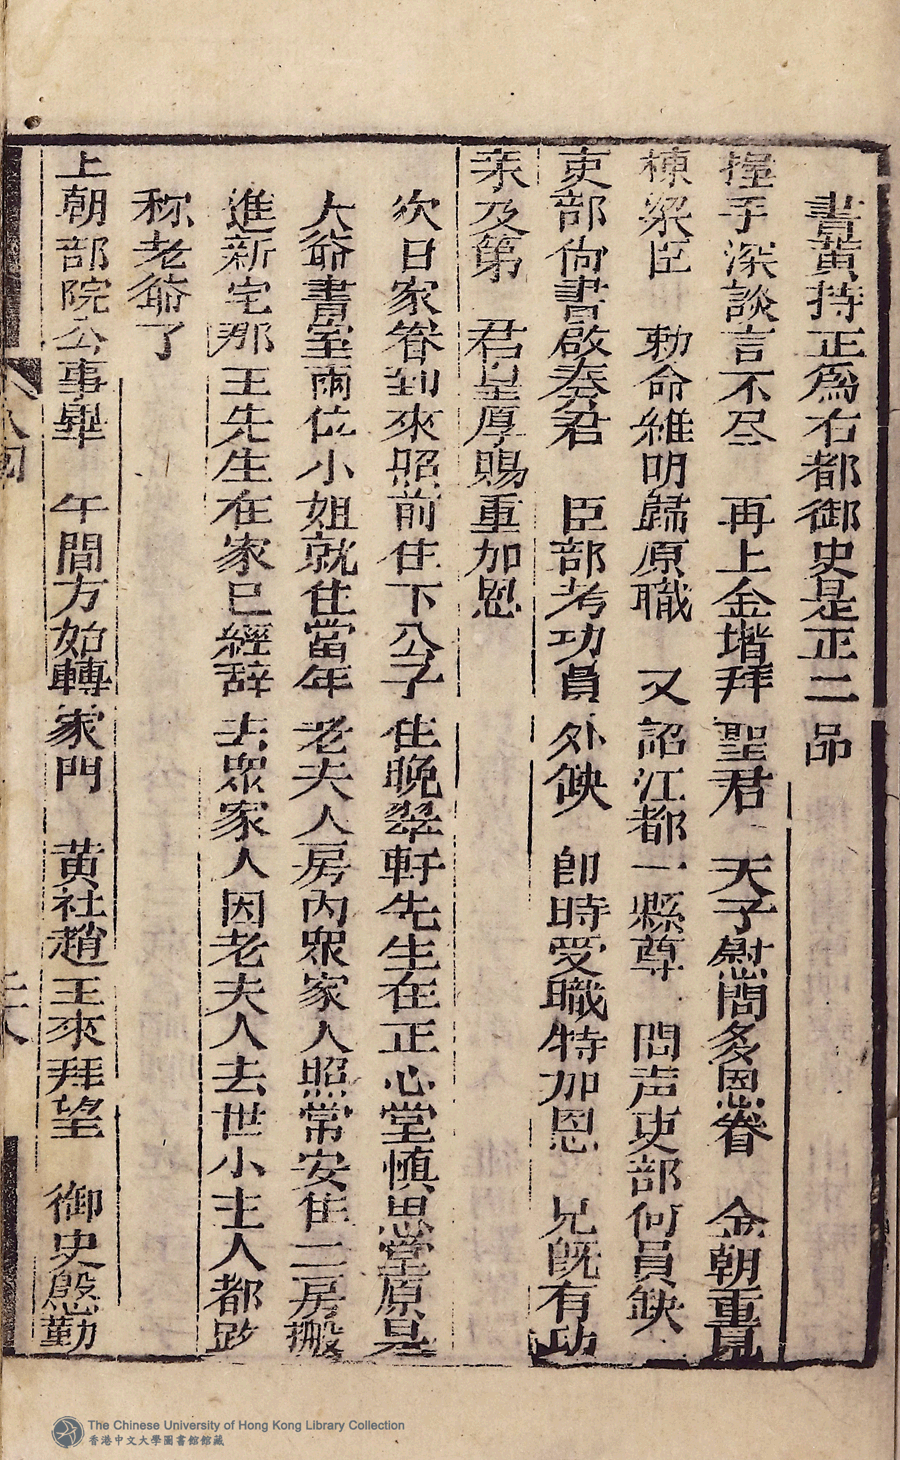 書黃持正為右都御史是正二品
握手深談言不尽　再上金堦拜聖君　天子慰問多恩眷　金朝重見
棟梁臣　勅命維明歸原職　又詔江都一縣尊　問声吏部何員缺
吏部尙書啟奏君　臣部考功員外缺　即時受職特加恩　兄旣有功
亲及第　君皇厚賜重加恩
次日家眷到來照前住下公子住晚翠軒先生在正心堂慎思堂原是
大爺書室兩位小姐就住當年老夫人房內眾家人照常安住二房搬
進新宅那王先生在家已經辞去眾家人因老夫人去世小主人都改
称老爺了
上朝部院公事畢　午間方始轉家門　黃社趙王來拜望　御史慇勤
八回
二八
The Chinese University of Hong Kong Library Collection
香港中文大學圖書館館藏